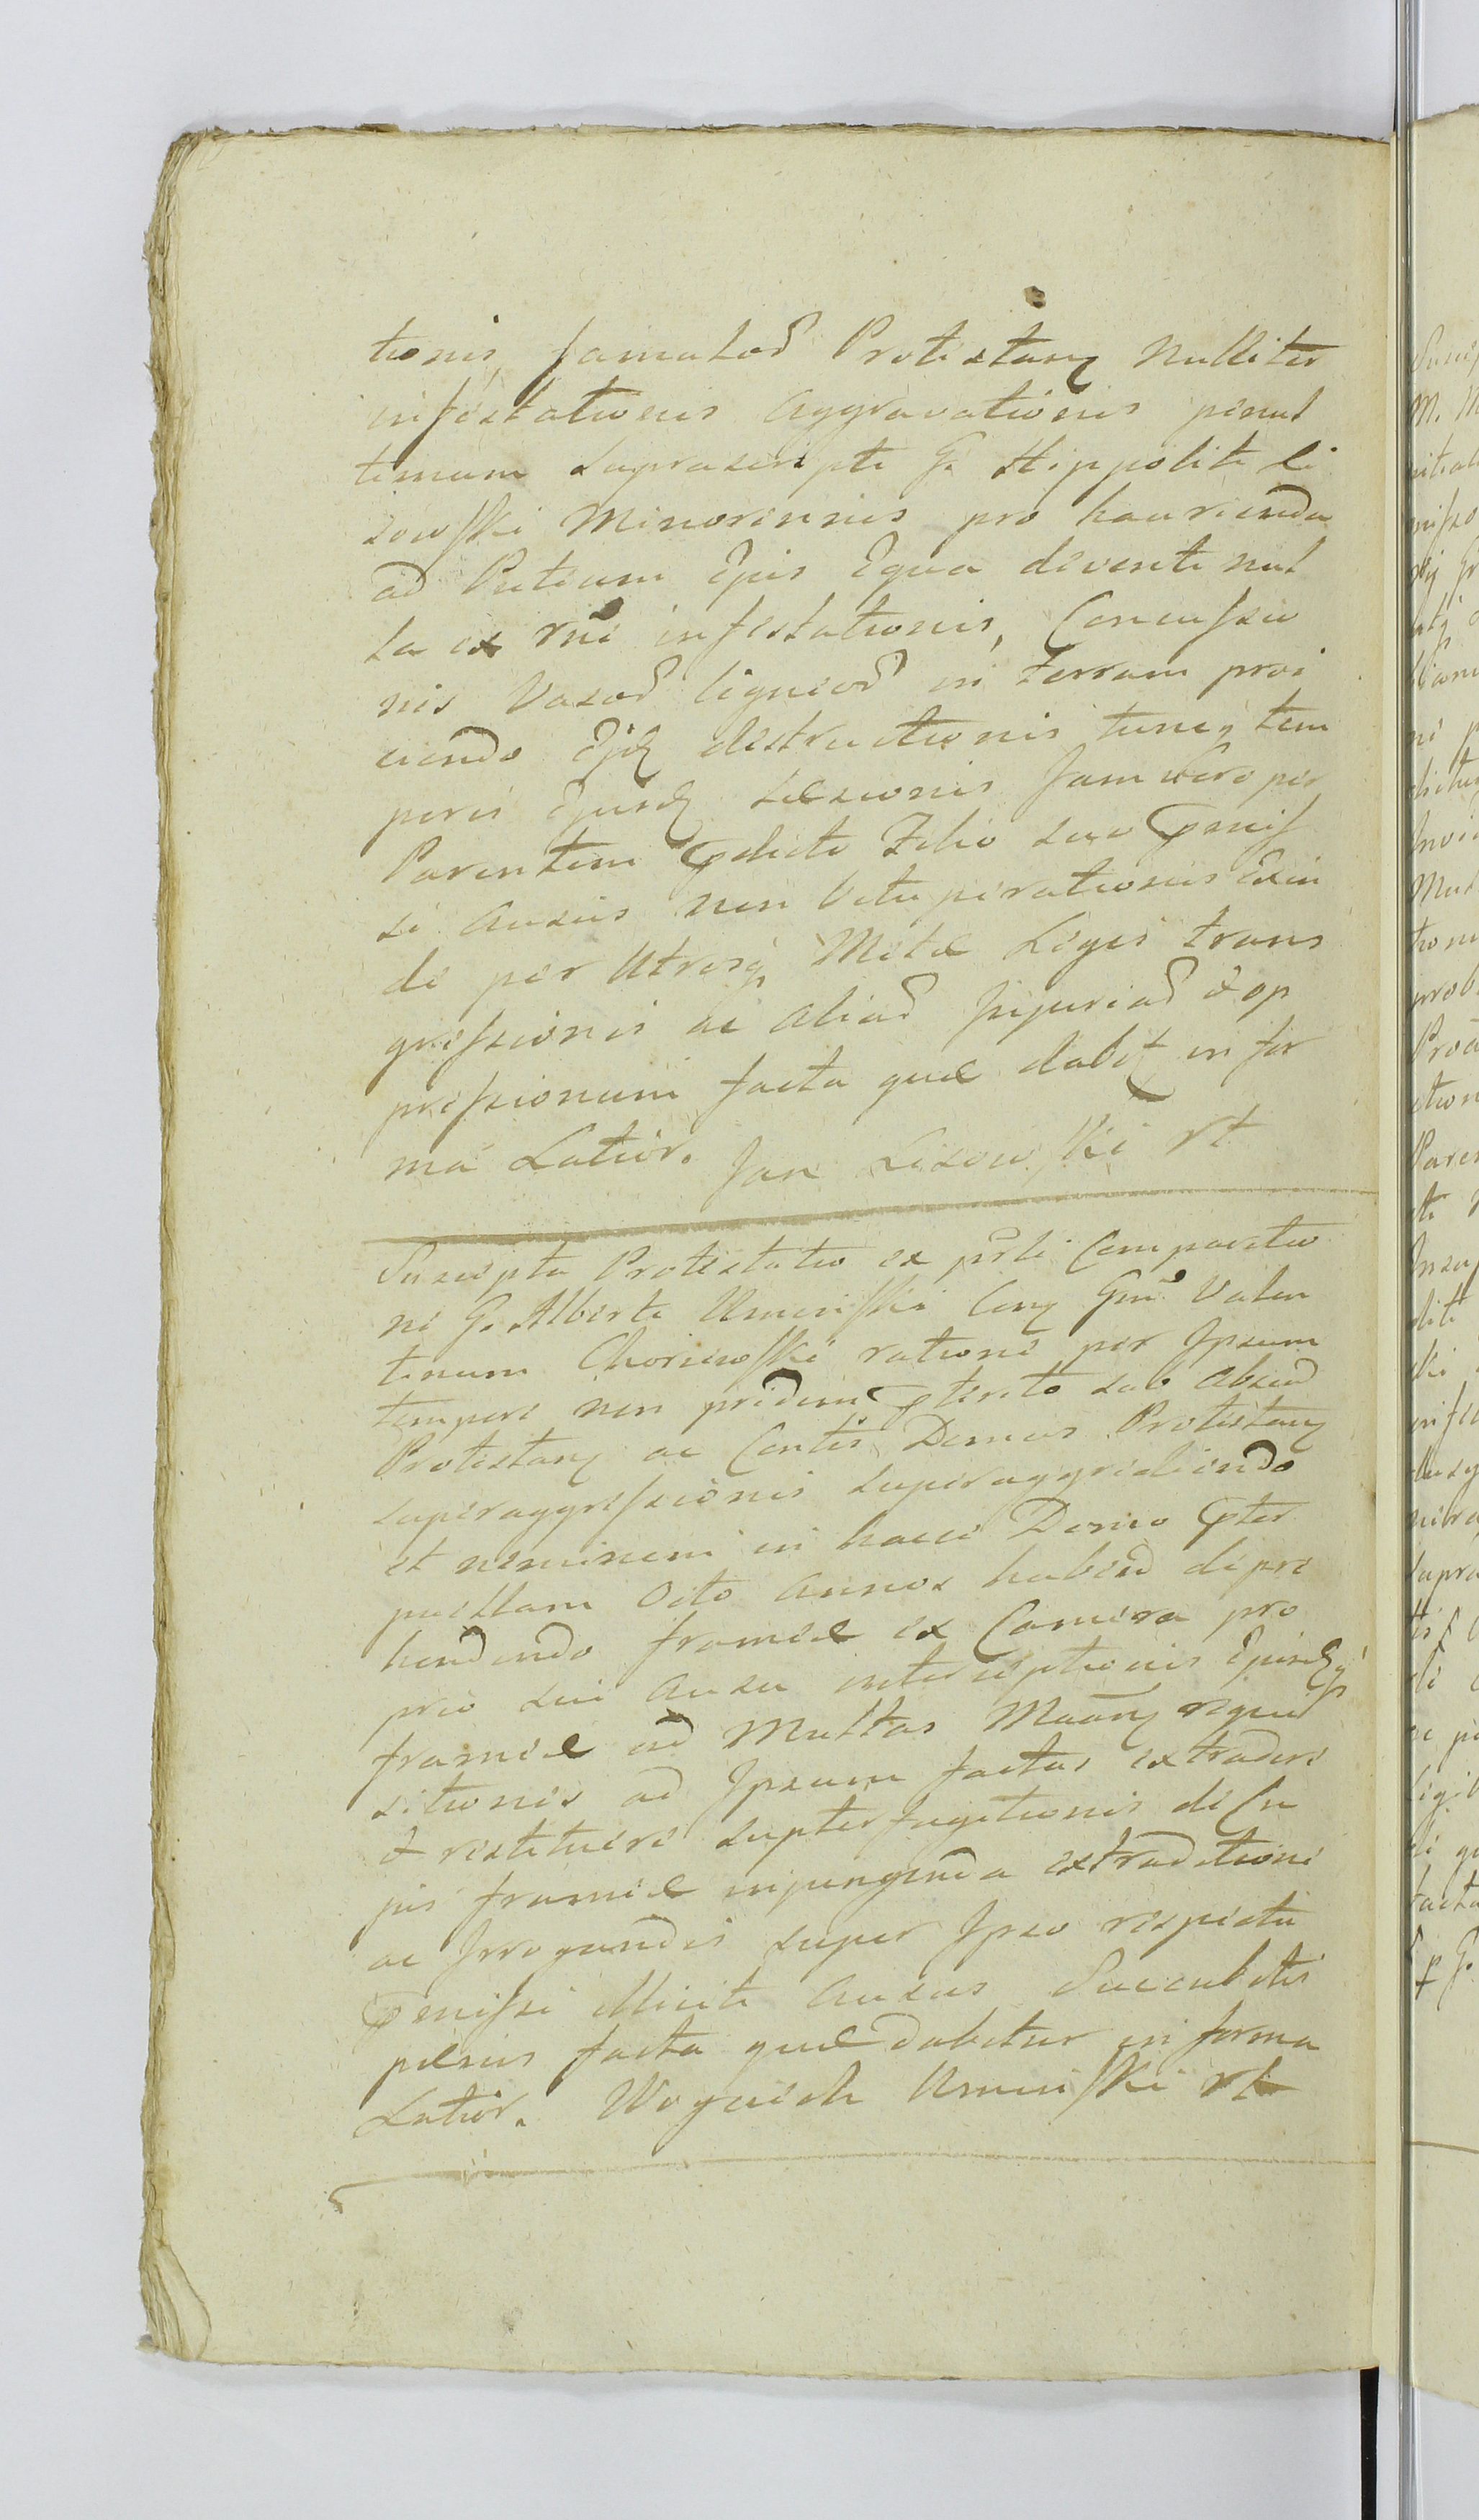 tionis, famulor Protestang Nulliter
infestationis aggravationis penul
timum Suprascripti G. Hippoliti Li
sowski Minorennis pro haurienda
ad Puteum Ejus Equa deventi nul
la ex rñe infestationis, Concussio
nis Vasor ligneor in Terram proi
ciendo Ejdq destructionis tuncq tem
poris Ejusdq Læsionis Jam vero per
Parentem pdicto Filio suo pmis
si ausus non Vituperationis Exin
de per Utrosq Metæ Legis trans
gressionis ac aliar Injuriar & op
pressionum facta quæ dabit in for
ma Latior. Jan Lisowski rt
Suscepta Protestatio ex pñti Comparitio
ne G. Alberti Umiński Conq Gnū Valen
tinum Choriewski ratione per Ipsum
tempore non pridem pterito sub absend
Protestang ac Contis Domus Protestang
superaggressionis superaggrediendo
et neminem in hacce Domo pter
puellam Octo annos habend depre
hendendo frameæ ex Camera pro
prio sui ausu interceptionis Ejusdq
frameæ ad Multas Maang requi
sitiones ad Ipsum factas extradere
& restituere supterfugitionis de Cu
jus frameæ injungenda extraditione
ac Irrogandis super Ipso respectu
pmissi illiciti ausus Succubitis
pænis facta quæ dabitur in forma
Latior. Woyciech Umiński rt